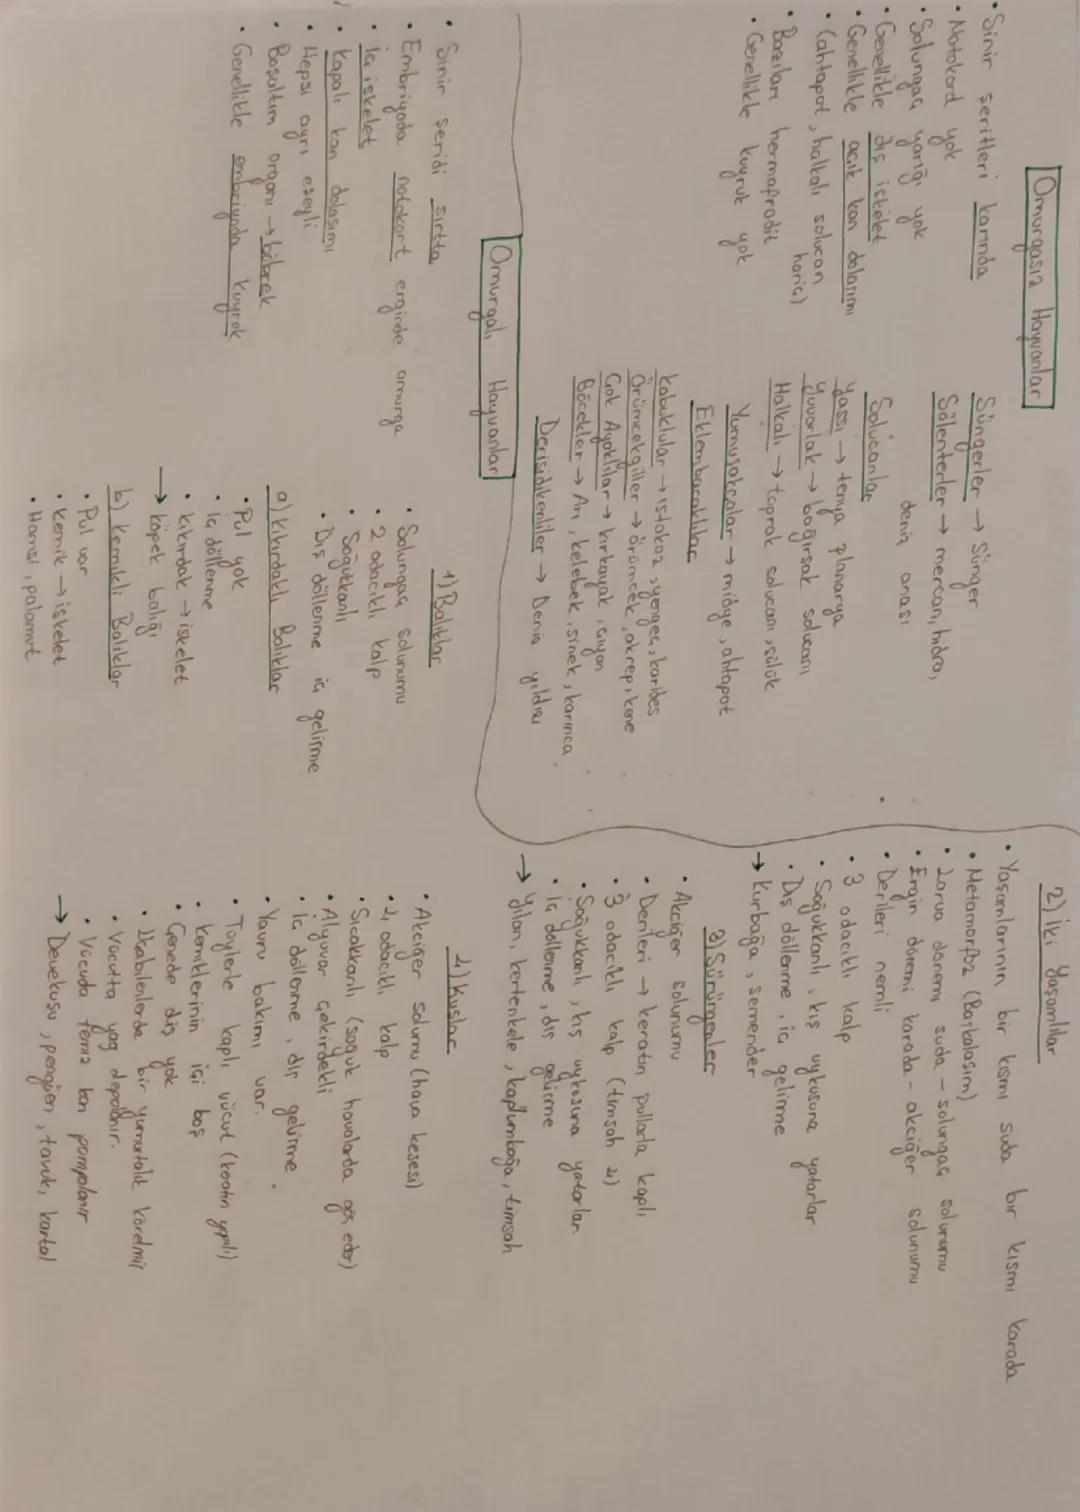 Omurgasız Hayvanlar
• Sinir şeritleri karında
• Notokord yok
• Solungaç yarığı yok
• Genellikle dış iskelet
• Genellikle açık kan dolaşımı
• (ahtapot, halkalı solucan hariç)
• Bazıları hermafrodit
• Genellikle kuyruk yok
Süngerler → Sünger
Sölenterler → mercan, hidra,
deniz anası
Solucanlar
Yassı → tenya planarya
Yuvarlak → bağırsak solucanı
Halkalı → toprak solucanı, sülük
Yumuşakçalar → midye, ahtapot
Eklembacaklılar
Kabuklular → ıstakoz, yengeç, karides
Örümcekgiller → örümcek, akrep, kene
Çok Ayaklılar → kırkayak, çıyan
Böcekler → Arı, kelebek, sinek, karınca
Derisidikenliler → Deniz yıldızı
Omurgalı Hayvanlar
• Sinir şeridi sırtta
• Embriyoda notokort erginde omurga
• İç iskelet
• Kapalı kan dolaşımı
• Hepsi ayrı eşeyli
• Boşaltım organı → böbrek
• Genellikle embriyonda kuyrok
1) Balıklar
• Solungaç solunumu
• 2 odacıklı kalp
• Soğukkanlı
• Dış döllenme iç gelişme
a) Kıkırdaklı Balıklar
• Pul yok
• iç döllenme
• Kıkırdak → iskelet
→ köpek balığı
b) Kemikli Balıklar
• Pul var
• Kemik → iskelet
• Hamsi, palamut
2) İki Yaşamlılar
• Yaşamlarının bir kısmı suda bir kısmı karada
• Metamorfoz (Başkalaşım)
• Larva dönemi suda - solungaç solunumu
• Ergin dönemi karada - akciğer solunumu
• Derileri nemli
• 3 odacıklı kalp
• Soğukkanlı, kış uykusuna yatarlar
• Dış döllenme, iç gelişme
→ Kurbağa, semender
3) Sürüngenler
• Akciğer solunumu
• Derileri → keratin pullarla kaplı
• 3 odacıklı kalp (timsah 4)
• Soğukkanlı, kış uykusuna yatarlar.
• İç döllenme, dış gelişme
→ Yılan, kertenkele, kaplumbağa, timsah
4) Kuşlar
• Akciğer solunu (hava kesesi)
• 4 odacıklı kalp
• Sıcakkanlı (soğuk havalarda göç eder)
• Alyuvar çekirdekli
• İç döllenme, dış gelişme.
• Yavru bakımı var.
• Tüylerle kaplı vücut (keratin yapılı)
• Kemiklerinin içi boş
• Çenede diş yok
• Uçabilenlerde bir yumurtalık körelmiş
• Vücutta yağ depolanır.
• Vücuda temiz kan pompalanır
→ Devekuşu, penguen, tavuk, kartal